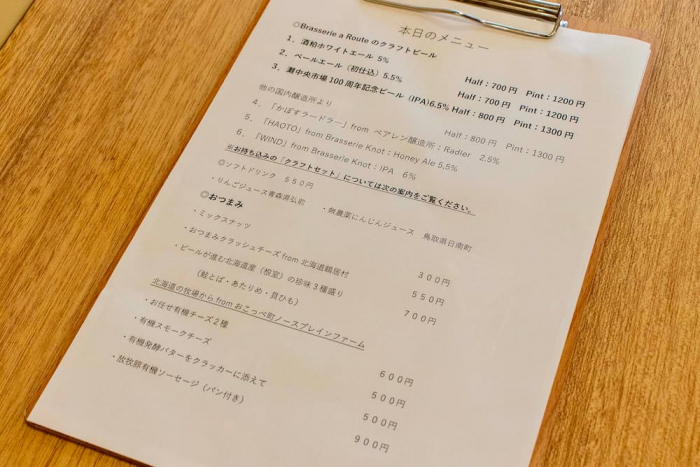 本日のメニュー
◎Brasserie a Route のクラフトビール
1．酒粕ホワイトエール 5% Half：700円 Pint：1200円
2．ペールエール（初仕込）5.5% Half：700円 Pint：1200円
3．灘中央市場100周年記念ビール（IPA)6.5% Half：800円 Pint：1300円
他の国内醸造所より Half：800円 Pint：1300円
4．「かぼすラードラー」from ベアレン醸造所：Radler 2.5%
5．「HAOTO」from Brasserie Knot：Honey Ale 5.5%
6．「WIND」from Brasserie Knot：IPA 6%
※お持ち込みの「クラフトセット」については次の案内をご覧ください。
◎ソフトドリンク 550円
・りんごジュース青森県弘前 ・無農薬にんじんジュース 鳥取県日南町
◎おつまみ
・ミックスナッツ 300円
・おつまみクラッシュチーズ from 北海道鶴居村 550円
・ビールが進む北海道産（根室）の珍味3種盛り 700円
（鮭とば・あたりめ・貝ひも）
北海道の牧場から from おこっぺ町ノースプレインファーム
・お任せ有機チーズ2種 600円
・有機スモークチーズ 500円
・有機発酵バターをクラッカーに添えて 500円
・放牧豚有機ソーセージ（パン付き） 900円